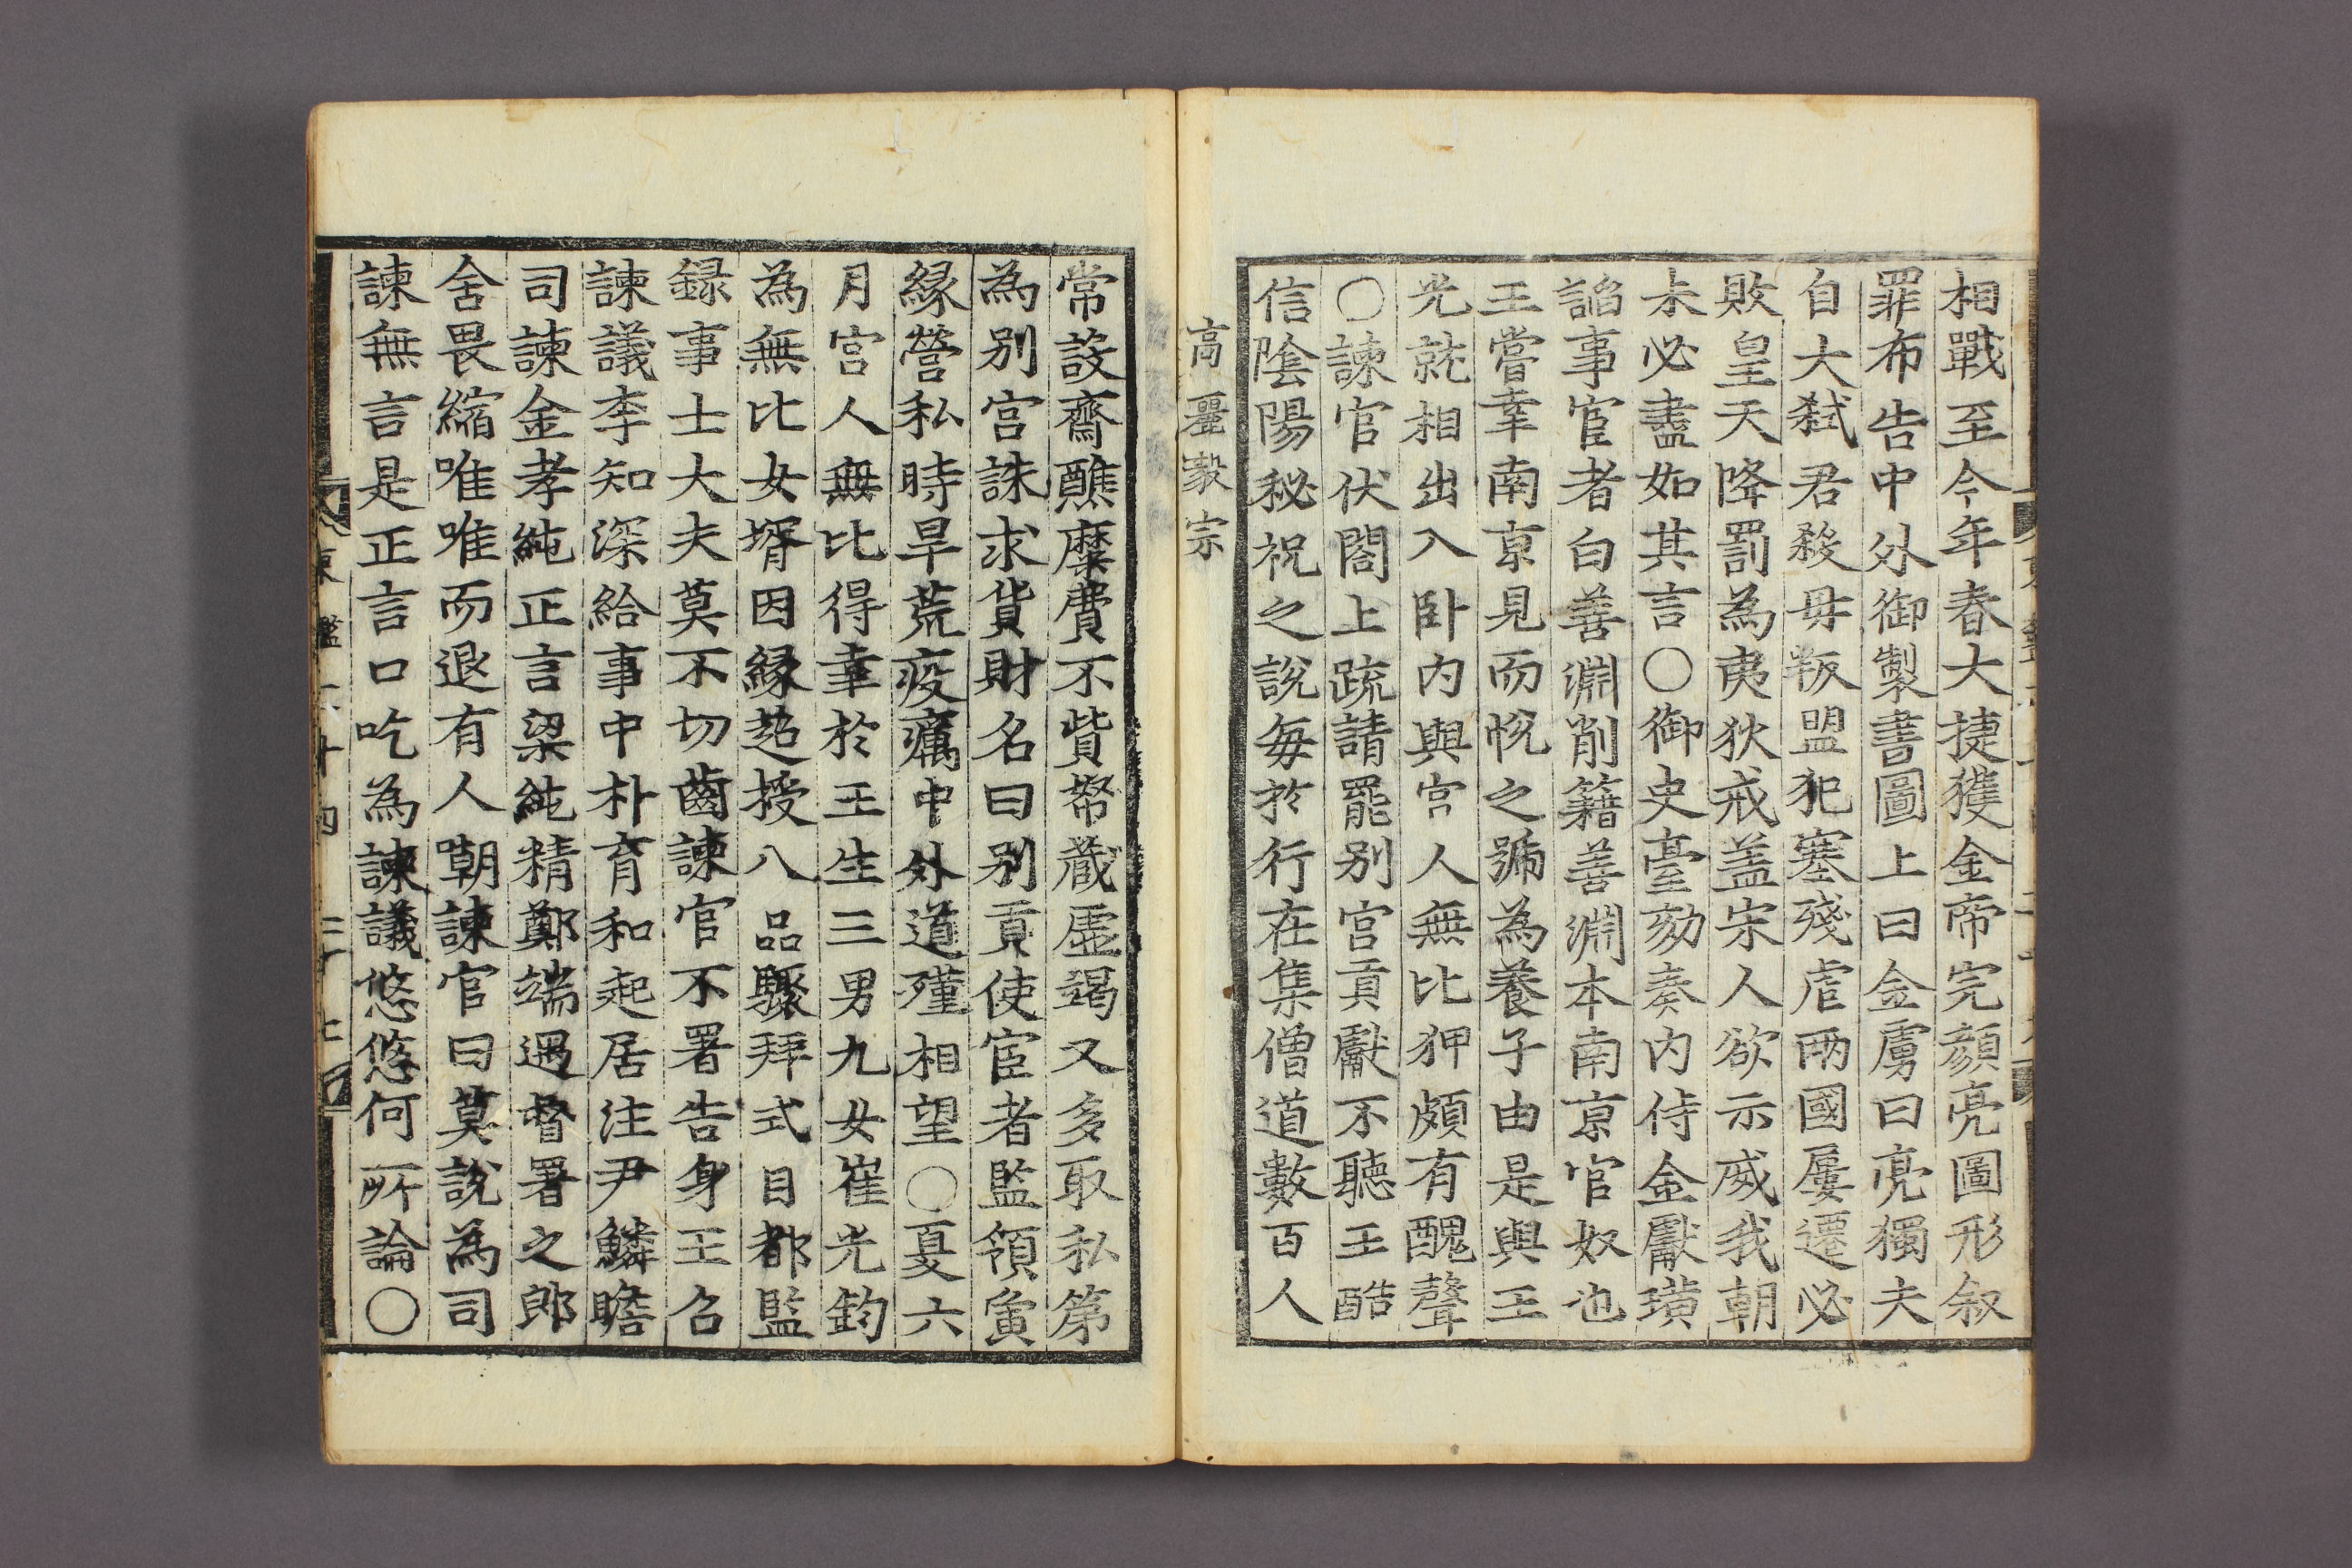 相戰至今年春大捷獲金帝完顔亮圖形叙
罪布告中外御製書圖上曰金虜曰亮獨夫
自大弑君殺母叛盟犯塞殘虐兩國屢遷必
敗皇天降罰為夷狄戒盖宋人欲示威我朝
未必盡如其言〇御史臺劾奏内侍金獻璜
諂事宦者白善淵削籍善淵本南京官奴也
王嘗幸南京見而悅之號為養子由是與王
光就相出入卧内與宮人無比狎頗有醜聲
〇諫官伏閤上疏請罷别宮貢獻不聽王酷
信陰陽秘祝之說每於行在集僧道數百人
高麗毅宗
常設齋醮糜費不貲帑藏虛竭又多取私第
為别宮誅求貨財名曰别貢使宦者監領夤
緣營私時旱荒疫癘中外道殣相望〇夏六
月宮人無比得幸於王生三男九女崔光鈞
為無比女壻因緣超授八品驟拜式目都監
録事士大夫莫不切齒諫官不署告身王召
諫議李知深給事中朴育和起居注尹鱗瞻
司諫金孝純正言梁純精鄭端遇督署之郎
舍畏縮唯唯而退有人嘲諫官曰莫說為司
諫無言是正言口吃為諫議悠悠何所論〇